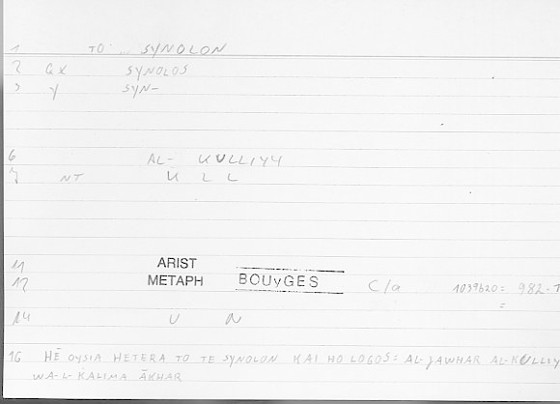 1 TO SYNOLON
2 GX SYNOLOS
3 Y SYN-
6 AL- KULLIYY
7 NT K L L
11 ARIST
12 METAPH BOUYGES C/a 1039b20 = 982.
=
14 U N
16 HĒ OYSIA HETERA TO TE SYNOLON KAI HO LOGOS = AL-JAWHAR AL-KULLIY
WA-L-KALIMA ĀKHAR